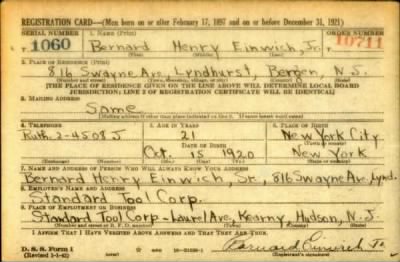 REGISTRATION CARD—(Men born on or after February 17, 1897 and on or before December 31, 1921)
SERIAL NUMBER 1. NAME (Print) ORDER NUMBER
1060 Bernard Henry Einwich, Jr. 10711
(First) (Middle) (Last)
2. PLACE OF RESIDENCE (Print)
816 Swayne Ave. Lyndhurst, Bergen, N. J.
(Number and street) (Town, township, village, or city) (County) (State)
[THE PLACE OF RESIDENCE GIVEN ON THE LINE ABOVE WILL DETERMINE LOCAL BOARD
JURISDICTION; LINE 2 OF REGISTRATION CERTIFICATE WILL BE IDENTICAL]
3. MAILING ADDRESS
Same
[Mailing address if other than place indicated on line 2. If same insert word same]
4. TELEPHONE 5. AGE IN YEARS 6. PLACE OF BIRTH
Ruth. 2-4508 J 21 New York City
DATE OF BIRTH
Oct. 15 1920 New York
(Exchange) (Number) (Mo.) (Day) (Yr.) (State or country)
7. NAME AND ADDRESS OF PERSON WHO WILL ALWAYS KNOW YOUR ADDRESS
Bernard Henry Einwich, Sr., 816 Swayne Av., Lynd.
8. EMPLOYER'S NAME AND ADDRESS
Standard Tool Corp.
9. PLACE OF EMPLOYMENT OR BUSINESS
Standard Tool Corp-Laurel Ave. Kearny, Hudson, N. J.
(Number and street or R. F. D. number) (Town) (County) (State)
I AFFIRM THAT I HAVE VERIFIED ABOVE ANSWERS AND THAT THEY ARE TRUE.
D. S. S. Form 1
(Revised 1-1-42) (over) Bernard Einwich Jr.